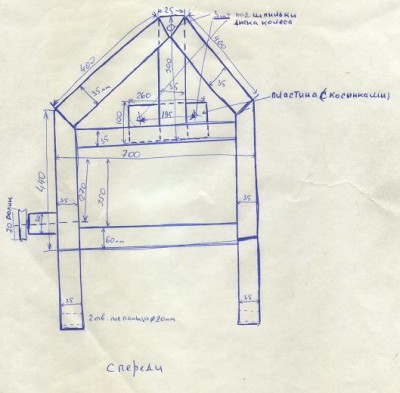 25
3 шт под шпильки
диска колеса
400
400
300
35мм
35
35
260
100
195
пластина (с косинками)
35
700
440
270
35
35
20 ролик
60мм
35
35
2 отв. под пальцы ф20мм
Спереди